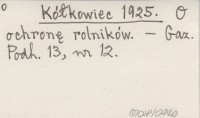 Kółkowiec 1925. O
ochronę rolników. — Gaz.
Podh. 13, nr 12.